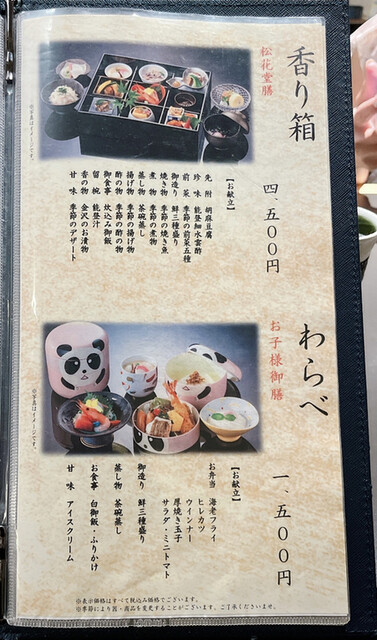 香り箱
松花堂膳
四、五〇〇円
【お献立】
先附 胡麻豆腐
珍味 能登細水雲酢
前菜 季節の前菜五種
御造り 鮮三種盛り
焼き物 季節の焼き魚
煮物 季節の煮物
蒸し物 茶碗蒸し
揚げ物 季節の揚げ物
酢の物 季節の酢の物
御食事 炊込み御飯
留椀 能登汁
香の物 金沢のお漬物
甘味 季節のデザート
※写真はイメージです。
わらべ
お子様御膳
一、五〇〇円
【お献立】
お弁当 海老フライ
ヒレカツ
ウインナー
厚焼き玉子
サラダ・ミニトマト
御造り 鮮三種盛り
蒸し物 茶碗蒸し
お食事 白御飯・ふりかけ
甘味 アイスクリーム
※写真はイメージです。
※表示価格はすべて税込み価格でございます。
※季節により器・商品を変更することがございます。ご了承くださいませ。